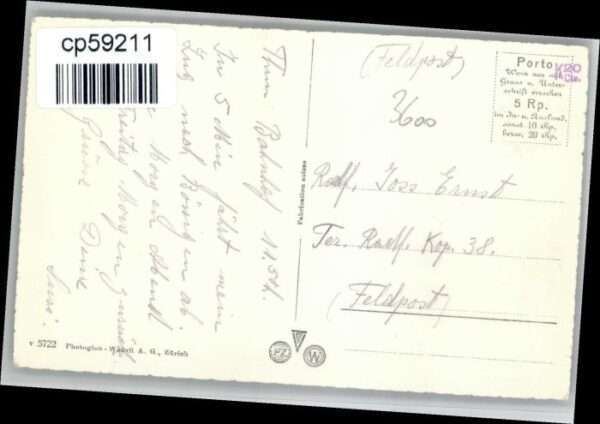 cp59211
Thun Bahnhof 11.50h.
In 5 Min fährt mein
Zug nach Bönigen ab.
Morgen Abend
Freitag Morgen zurück
Grüsse Deine
Susi.
(Feldpost)
3600
Radf. Joss Ernst
Ter. Radf. Kop. 38.
(Feldpost)
Porto
Wenn nur mit
Gruss u. Unter-
schrift versehen
5 Rp.
im In- u. Ausland,
sonst 10 Rp.
bezw. 20 Rp.
Fabrication suisse
v 5722 Photoglob-Wehrli A. G., Zürich
PZ W